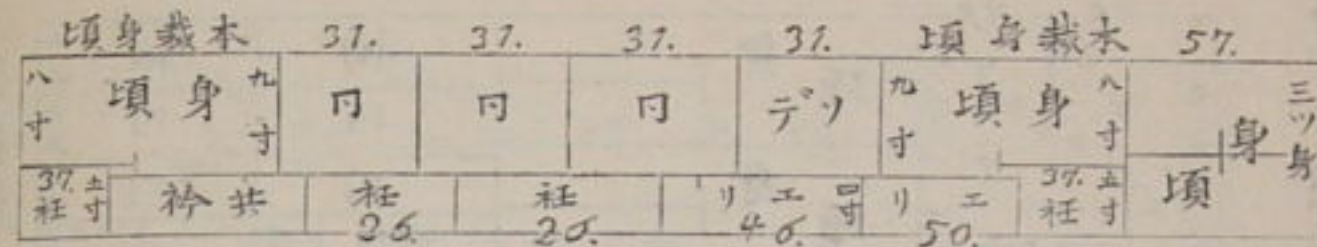 頃身裁本 31. 31. 31. 31. 頃身裁本 57.
八寸 頃身 九寸 円 円 円 デソ 九寸 頃身 八寸 身頃 三ツ身
37. 五寸 衽 衿共 衽 26. 衽 26. リエ 四寸 46. リエ 50. 37. 五寸 衽